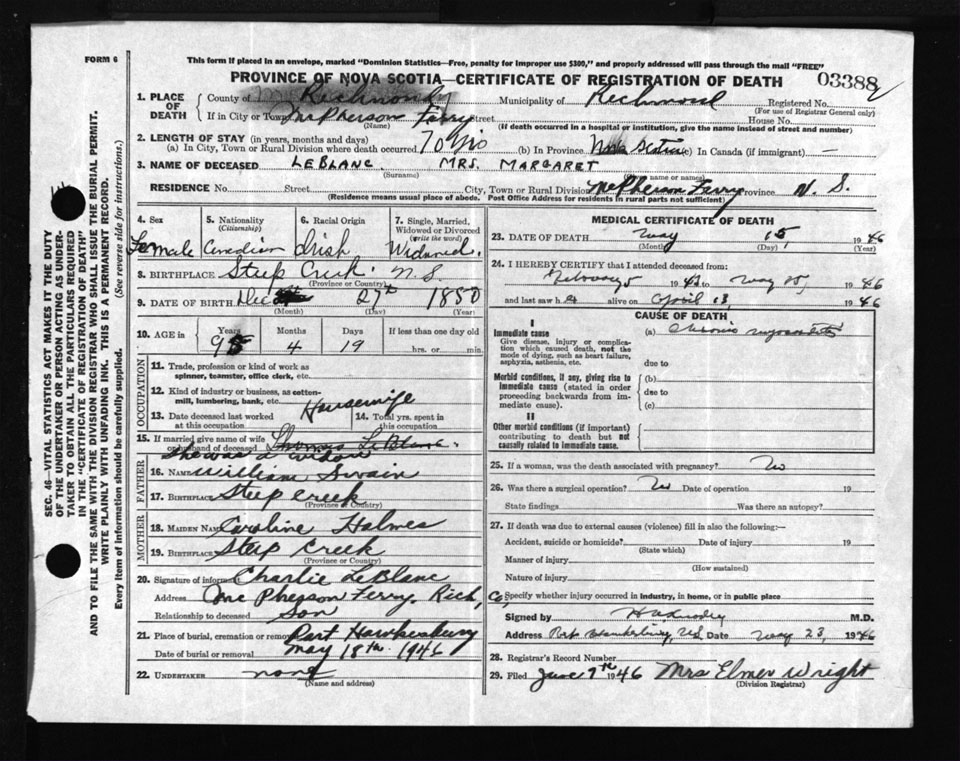 FORM 6
This form if placed in an envelope, marked "Dominion Statistics—Free, penalty for improper use $300," and properly addressed will pass through the mail "FREE"
PROVINCE OF NOVA SCOTIA—CERTIFICATE OF REGISTRATION OF DEATH
03388
1. PLACE OF DEATH County of Richmond Municipality of Richmond Registered No.
(For use of Registrar General only)
If in City or Town McPherson Ferry Street House No.
(Name) (If death occurred in a hospital or institution, give the name instead of street and number)
2. LENGTH OF STAY (in years, months and days)
(a) In City, Town or Rural Division where death occurred 70 yrs (b) In Province Nova Scotia (c) In Canada (if immigrant) —
3. NAME OF DECEASED LEBLANC MRS. MARGARET
(Surname) name or names)
RESIDENCE No. Street City, Town or Rural Division McPherson Ferry Province N. S.
(Residence means usual place of abode. Post Office Address for residents in rural parts not sufficient)
4. Sex 5. Nationality (Citizenship) 6. Racial Origin 7. Single, Married, Widowed or Divorced (write the word)
Female Canadian Irish Widowed.
8. BIRTHPLACE Steep Creek. N S
(Province or Country)
9. DATE OF BIRTH Dec 27th 1850
(Month) (Day) (Year)
10. AGE in Years Months Days If less than one day old
95 4 19 hrs. or min.
OCCUPATION
11. Trade, profession or kind of work as spinner, teamster, office clerk, etc.
12. Kind of industry or business, as cotton-mill, lumbering, bank, etc. Housewife
13. Date deceased last worked at this occupation 14. Total yrs. spent in this occupation
15. If married give name of wife or husband of deceased Thomas LeBlanc.
She was a widow
FATHER
16. NAME William Swain
17. BIRTHPLACE Steep Creek
(Province or Country)
MOTHER
18. MAIDEN NAME Caroline Holmes
19. BIRTHPLACE Steep Creek
(Province or Country)
20. Signature of informant Charlie LeBlanc
Address McPherson Ferry. Rich, Co,
Relationship to deceased Son
21. Place of burial, cremation or removal Port Hawkesbury
Date of burial or removal May 18th. 1946
22. UNDERTAKER none
(Name and address)
MEDICAL CERTIFICATE OF DEATH
23. DATE OF DEATH May 15, 1946
(Month) (Day) (Year)
24. I HEREBY CERTIFY that I attended deceased from:
to May 15, 1946
and last saw h alive on April 13, 1946
CAUSE OF DEATH
I
Immediate cause (a) Chronic myocarditis
Give disease, injury or complication which caused death, not the mode of dying, such as heart failure, asphyxia, asthenia, etc. due to
Morbid conditions, if any, giving rise to immediate cause (stated in order proceeding backwards from immediate cause). (b)
due to
(c)
II
Other morbid conditions (if important) contributing to death but not causally related to immediate cause.
25. If a woman, was the death associated with pregnancy? No
26. Was there a surgical operation? No Date of operation 19
State findings Was there an autopsy?
27. If death was due to external causes (violence) fill in also the following:—
Accident, suicide or homicide? Date of injury 19
(State which)
Manner of injury
(How sustained)
Nature of injury
Specify whether injury occurred in industry, in home, or in public place
Signed by M.D.
Address Port Hawkesbury, NS Date May 23, 1946
28. Registrar's Record Number
29. Filed June 7th 1946 Mrs Elmer Wright
(Division Registrar)
SEC. 46—VITAL STATISTICS ACT MAKES IT THE DUTY
OF THE UNDERTAKER OR PERSON ACTING AS UNDERTAKER TO OBTAIN ALL THE PARTICULARS REQUIRED
IN THE "CERTIFICATE OF REGISTRATION OF DEATH"
AND TO FILE THE SAME WITH THE DIVISION REGISTRAR WHO SHALL ISSUE THE BURIAL PERMIT.
WRITE PLAINLY WITH UNFADING INK. THIS IS A PERMANENT RECORD.
Every item of information should be carefully supplied. (See reverse side for instructions.)